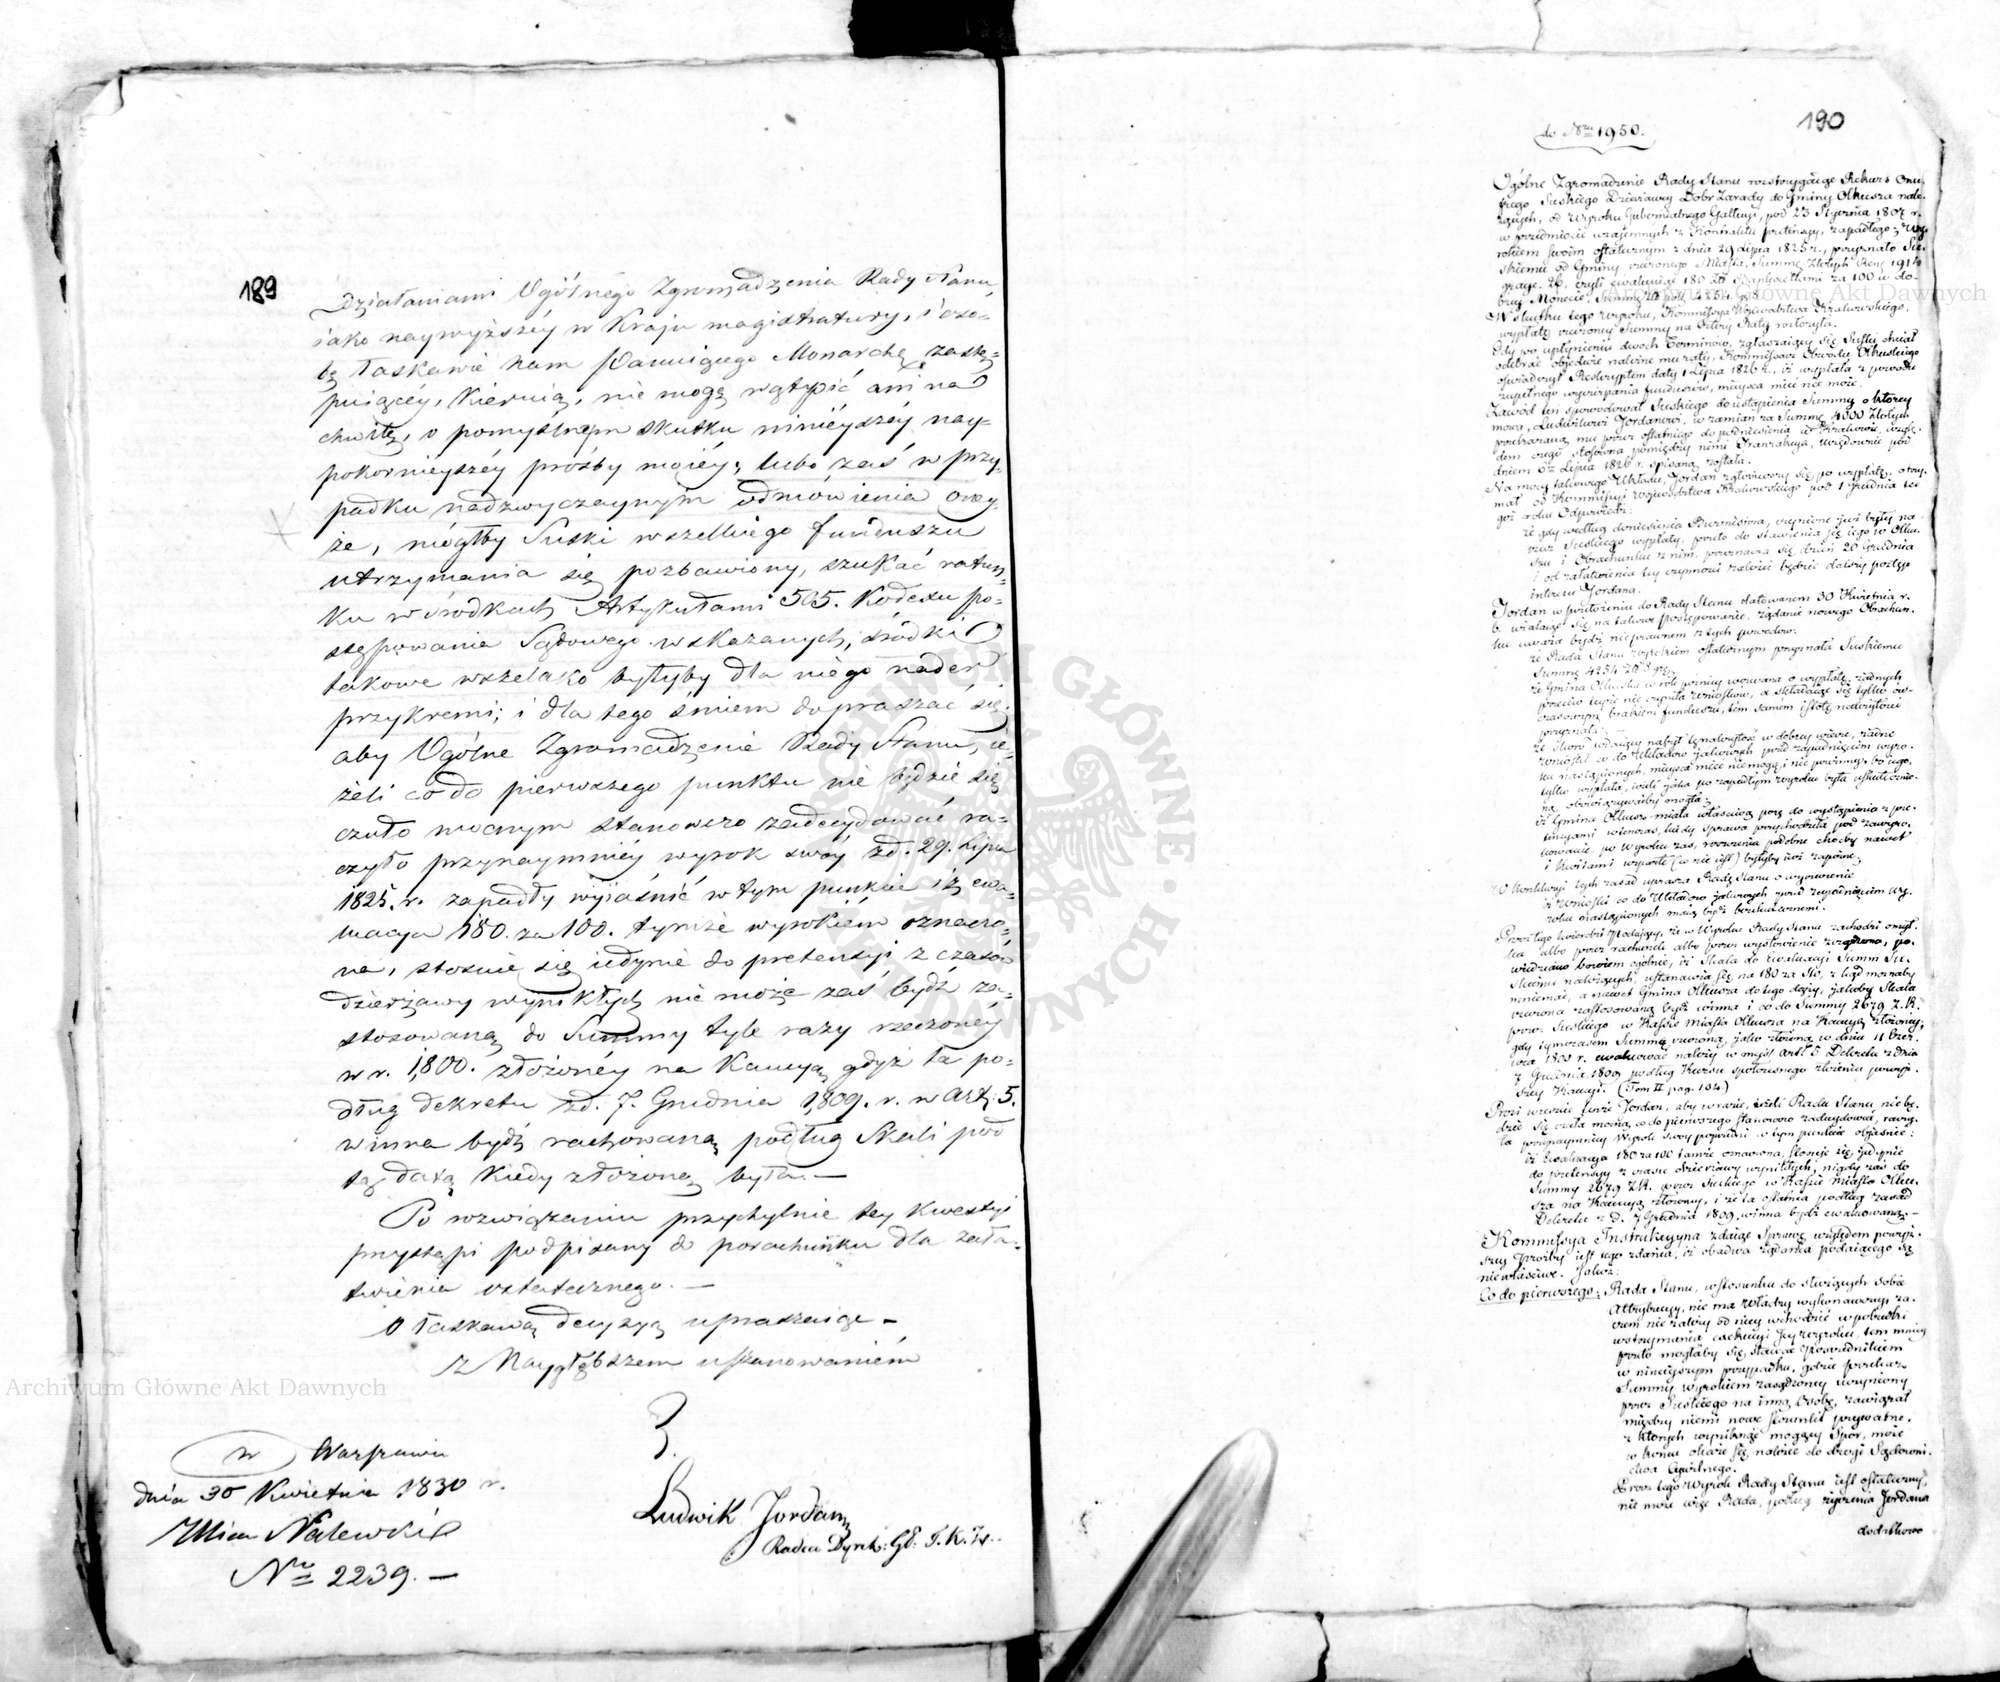 189
Działaniami Ogólnego Zgromadzenia Rady Stanu,
iako naywyższéy w Kraju magistratury, i oso-
bę łaskawie nam Panuiącego Monarchę zastę-
puiącéy, kieruią, nie mogę wątpić ani na
chwilę, o pomyślnym skutku ninieyszéy nay-
pokornieyszéy prośby moiéy; lubo zaś w przy-
padku nadzwyczaynym odmówienia oney-
że, mógłby Suski wszelkiego funduszu
utrzymania się pozbawiony, szukać ratun-
ku w środkach Artykułami 505. Kodexu po-
stępowania Sądowego wskazanych, środki
takowe wszelako byłyby dla niego nader
przykremi; i dla tego śmiem dopraszać się
aby Ogólne Zgromadzenie Rady Stanu, ie-
żeli co do pierwszego punktu nie będzie się
czuło mocnym stanowczo zadecydować ra-
czyło przynaymniéy wyrok swóy zd. 29. Lipca
1825. r. zapadły wyjaśnić w tym punkcie iż ewa-
luacya 180. za 100. tymże wyrokiem oznaczo-
na, stosuie się iedynie do pretensyi z czasów
dzierżawy wynikłych nie może zaś bydź za-
stosowaną do Summy tyle razy rzeczonéy
w r. 1,800. złożonéy na Kaucyą gdyż ta po-
dług dekretu zd. 7. Grudnia 1,809. r. w art. 5.
winna bydź rachowaną podług Skali pod
tą datą kiedy złożoną była. —
Po rozwiązaniu przychylnie tey kwestyi
przystąpi podpisany do porachunku dla zała-
twienia ostatecznego. —
O łaskawą decyzyą upraszaiąc —
Z Naygłębszem uszanowaniem
w Warszawie
dnia 30 Kwietnia 1830 r.
Ulica Nalewki
Nro 2239. —
Ludwik Jordan
Radca Dyrek: Gł: T. K. Z.
190
do Nru 1950.
Ogólne Zgromadzenie Rady Stanu rozstrzygaiąc Rekurs Onu-
frego Suskiego Dzierżawcy Dobr Żarady do Gminy Olkusza nale-
żących, od Wyroku Gubernialnego Gallicyi, pod 23 Stycznia 1807 r.
w przedmiocie wzajemnych z Kontraktu pretensyi, zapadłego; Wy-
rokiem swoim ostatecznym z dnia 29 Lipca 1825 r., przyznało Su-
skiemu od Gminy rzeczonego Miasta, Summę Złotych Reń: 1914
gracy. 26. czyli ewaluuiąc 180 Złr Bankocetlami za 100 w do-
brey Monecie, Summę Zł: pol: 4254 g. 8.
W skutku tego Wyroku, Kommissya Województwa Krakowskiego,
wypłatę rzeczoney Summy na Cztery Raty rozłożyła.
Gdy po upłynieniu dwoch Terminów, zgłaszaiący się Suski chciał
odebrać obiedwie należne mu raty, Kommissarz Obwodu Olkuskiego
oświadczył Reskryptem daty 1 Lipca 1826 r., iż wypłata z powodu
zupełnego wyczerpania funduszów, mieysca mieć nie może.
Zawód ten spowodował Suskiego do ustąpienia Summy o którey
mowa, Ludwikowi Jordanowi, w zamian za Summę 4000 Złotych
pożyczoną mu przez ostatniego do podniesienia w Krakowie, wzglę-
dem czego stosowna pomiędzy nimi Tranzakcya, urzędownie pod
dniem 6o Lipca 1826 r. spisaną została.
Na mocy takowego Układu, Jordan zgłosiwszy się po wypłatę, otrzy-
mał od Kommissyi Województwa Krakowskiego pod 1 Grudnia te-
goż roku Odpowiedź:
że gdy według doniesienia Burmistrza, czynione już były na
rzecz Suskiego wypłaty, przeto do stawienia się iego w Olku-
szu i Obrachunku z nim, przeznacza się dzień 20 Grudnia
i od załatwienia tey czynności zależeć będzie dalszy postęp
interesu Jordana.
Jordan w przełożeniu do Rady Stanu datowanem 30 Kwietnia r.
b. użalaiąc się na takowe postępowanie, żądanie nowego Obrachun-
ku uważa bydź nieprawnem z tych powodów:
że Rada Stanu wyrokiem ostatecznym przyznała Suskiemu
Summę 4254 Złp 8 gr.
że Gmina Olkuska w rok później wezwana o wypłatę, żadnych
przeciw teyże nie czyniła wniosków, a składaiąc się tylko ów-
czesowym brakiem funduszu, tem samem istotę należytości
przyznała; —
że skoro wdaiący nabył tę należytość w dobrey wierze, żadne
wnioski co do Układów jakowych przed zapadnięciem wyro-
ku nastąpionych, mieysca mieć nie mogą, i nie powinny; bo iego,
tylko wypłata, ieśli jaka po zapadłym wyroku była uskutecznio-
na, obowiązywaćby mogła;
iż Gmina Olkusz miała właściwą porę do wystąpienia z pre-
tensyami wówczas, kiedy sprawa przychodziła pod zawyro-
kowanie; po Wyroku zaś, roszczenia podobne choćby nawet
i Kwitami wsparte (co nie iest) byłyby już zapóźne;
W konkluzyi tych zasad uprasza Radę Stanu o wyrzeczenie
iż wnioski co do Układów jakowych przed zapadnięciem Wy-
roku nastąpionych maią bydź bezskutecznemi.
Prócz tego twierdzi Podający, że w Wyroku Rady Stanu zachodzi omył-
ka albo przez rachunek albo przez wysłowienie zrządzona, po-
wiedziano bowiem ogólnie, iż Skala do Ewaluacyi Summ Su-
skiemu należących, ustanawia się na 180 za Sto, z kąd możnaby
mniemać, a nawet Gmina Olkusza do tego dąży, jakoby Skala
rzeczona zastosowaną bydź winna i co do Summy 2679 Z.R.
przez Suskiego w Kassie miasta Olkusza na Kaucyą złożoney;
gdy tymczasem Summę rzeczoną, jako złożoną w dniu 11 Czer-
wca 1803 r. ewaluować należy w myśl artł 5 Dekretu z dnia
7 Grudnia 1809 podług Kursu społczesnego złożeniu powyż-
szey Kaucyi. (Tom II pag. 104.)
Prosi wreszcie tenże Jordan, aby w razie, ieżeli Rada Stanu nie bę-
dzie się czuła mocną, co do pierwszego stanowczo zadecydować, raczy-
ła przynaymniey Wyrok swóy poprzedni w tym punkcie objaśnić:
iż Ewaluacya 180 za 100 tamże oznaczona, stosuie się jedynie
do pretensyi z czasu dzierżawy wynikłych; nigdy zaś do
Summy 2679 Z.R. przez Suskiego w Kassie miasta Olku-
sza na Kaucyą złożoney, i że ta ostatnia podług zasad
Dekretu z d. 7 Grudnia 1809 winna bydź ewaluowaną. —
Kommissya Instrukcyyna zdaiąc Sprawę względem powyż-
szey Prośby iest tego zdania, iż obadwa żądania podaiącego są
niewłaściwe. Jakoż:
Co do pierwszego; Rada Stanu, w stosunku do służących sobie
Attrybucyy, nie ma Władzy wykonawczey, za-
czem nie należy do niey wchodzić w pobudki
wstrzymania exekucyi Jey wyroku, tem mniey
przeto mogłaby się stawać Pośrednikiem
w ninieyszym przypadku, gdzie przekaz
Summy wyrokiem zasądzoney uczyniony
przez Suskiego na inną Osobę, zawiązał
między niemi nowe stosunki prywatne,
z których wyniknąć mogący Spór, może
w końcu okaże się należeć do drogi Sądowni-
ctwa Cywilnego.
Prócz tego Wyrok Rady Stanu iest ostateczny,
nie może więc Rada, podług życzenia Jordana
dodatkowo
Archiwum Główne Akt Dawnych
Archiwum Główne Akt Dawnych
ARCHIWUM GŁÓWNE AKT DAWNYCH